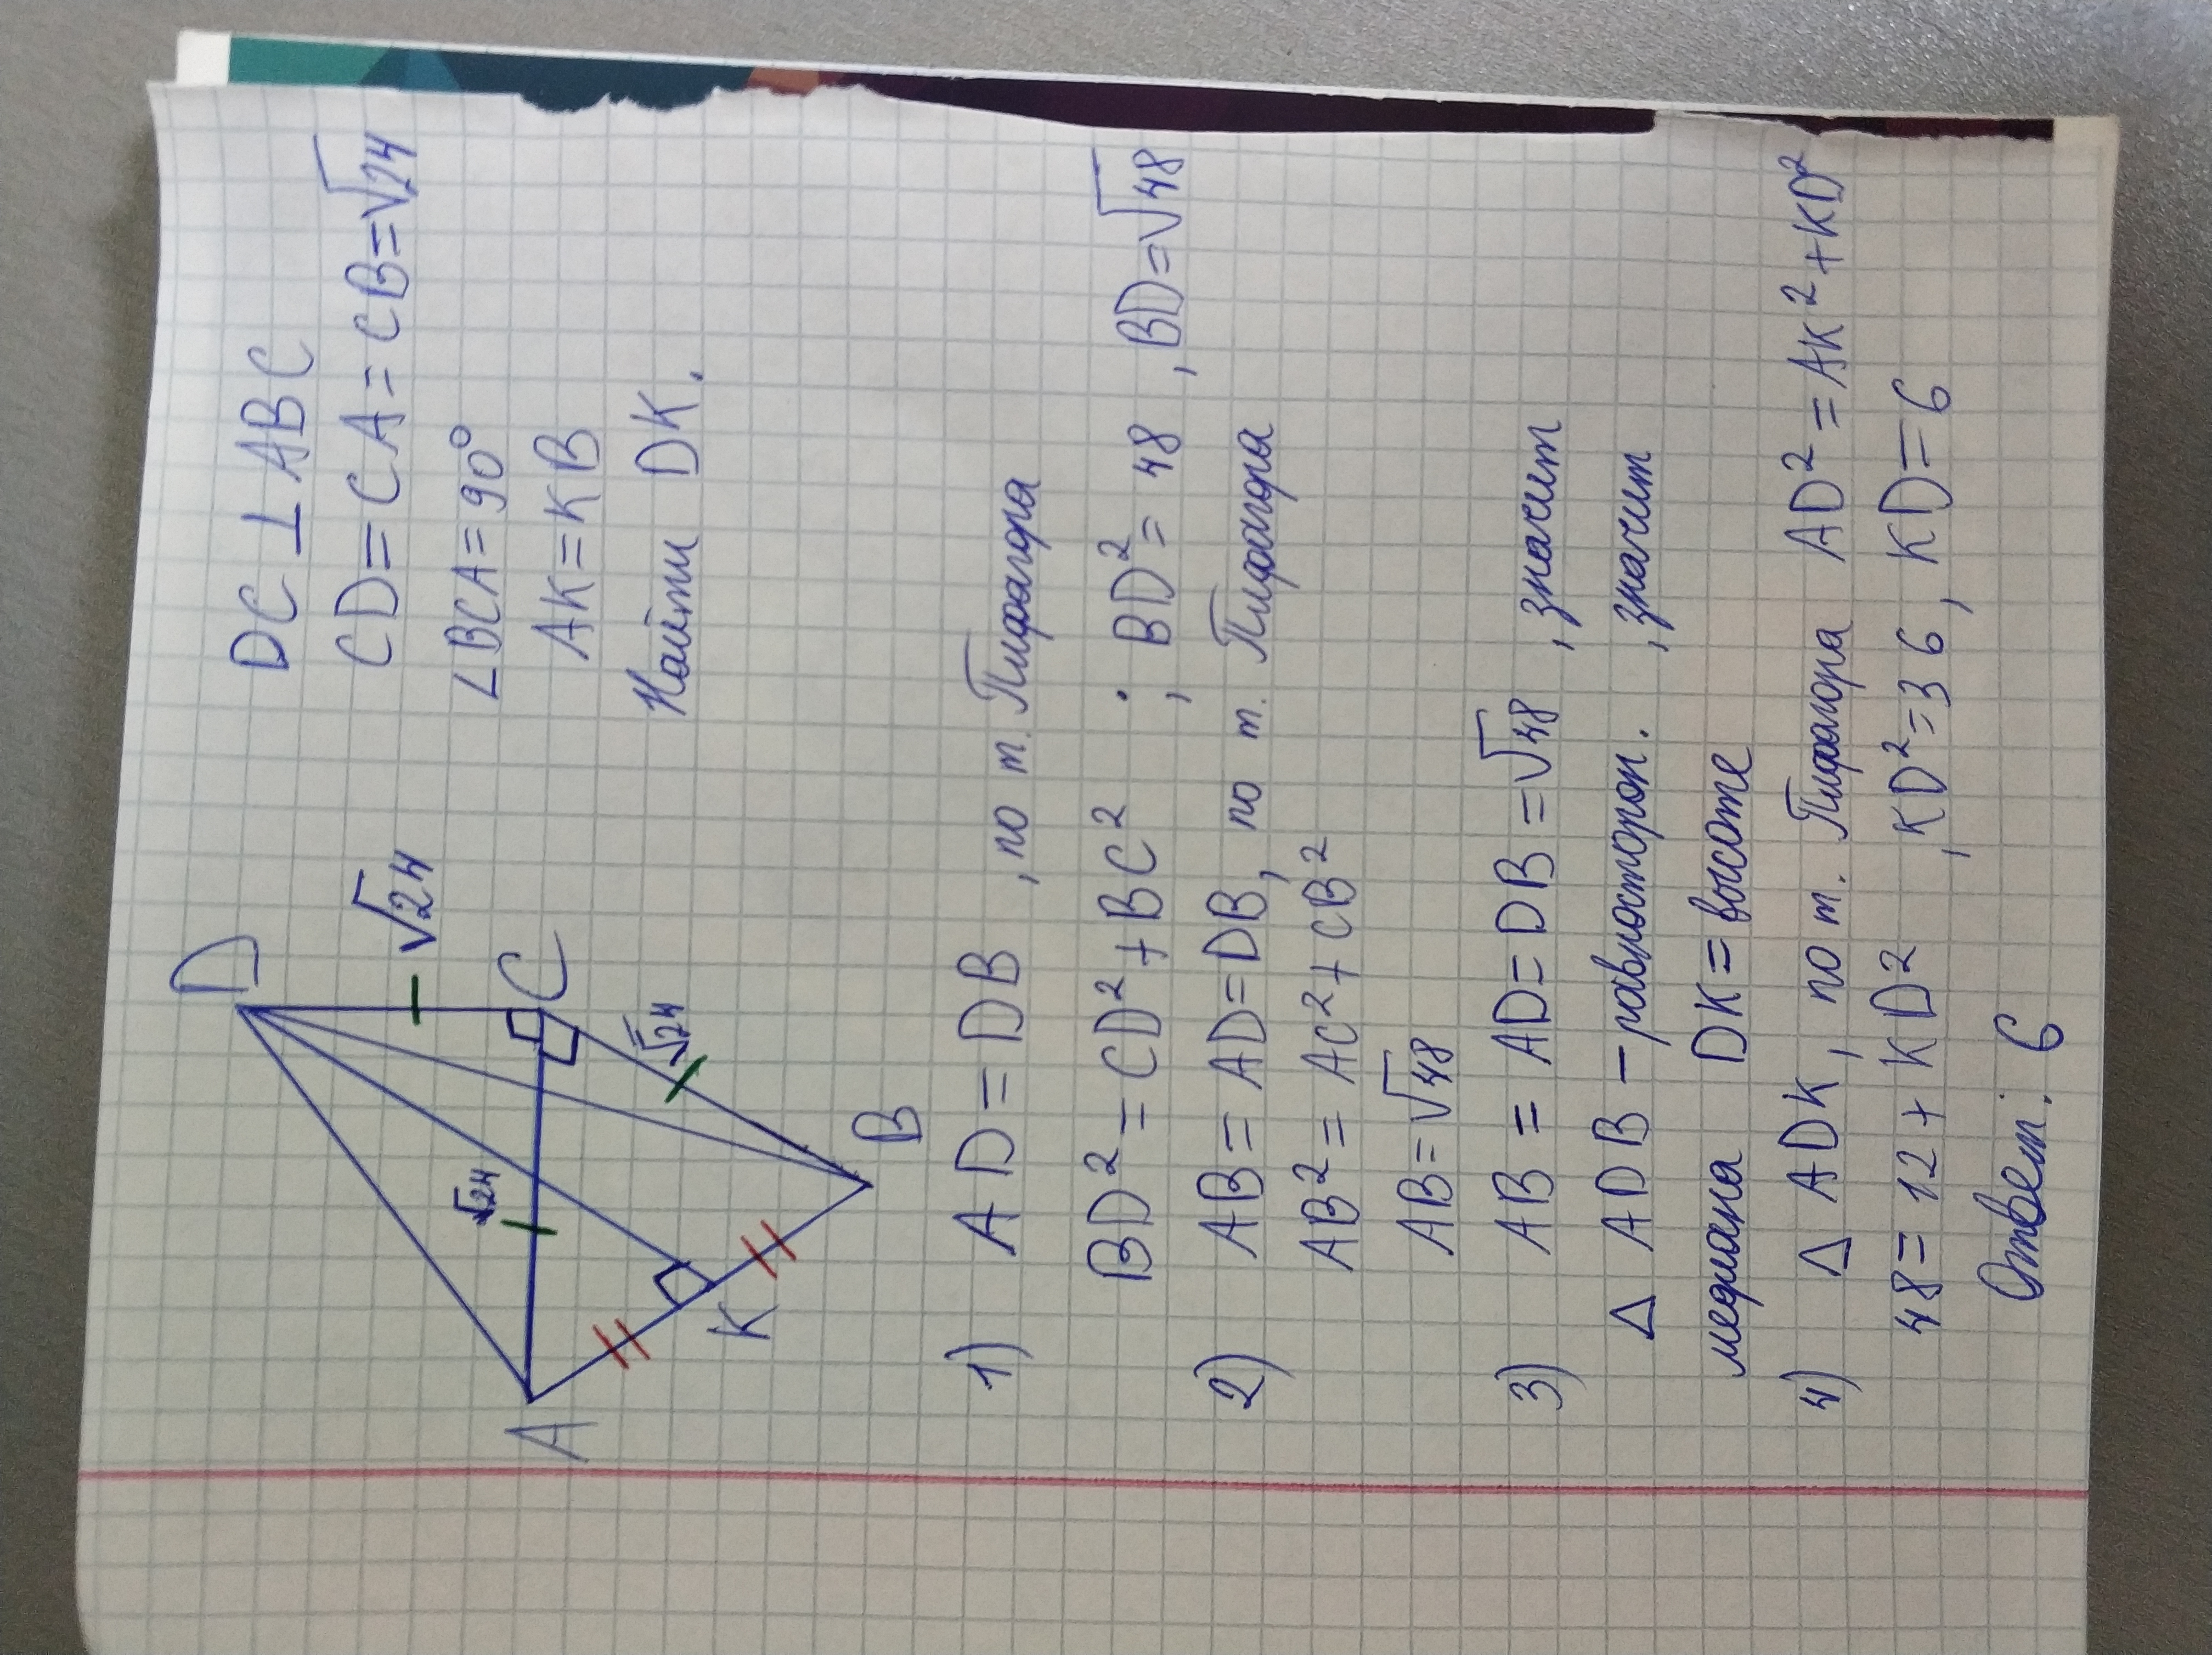 DC ⊥ ABC
CD = CA = CB = √24
∠BCA = 90°
AK = KB
Найти DK.
D
√24
C
√24
√24
A
K
B
1) AD = DB , по т. Пифагора
BD² = CD² + BC² ; BD² = 48 , BD = √48
2) AB = AD = DB, по т. Пифагора
AB² = AC² + CB²
AB = √48
3) AB = AD = DB = √48 , значит
△ ADB – равносторон. , значит
медиана DK = высоте
4) △ ADK, по т. Пифагора AD² = AK² + KD²
48 = 12 + KD² , KD² = 36 , KD = 6
Ответ: 6